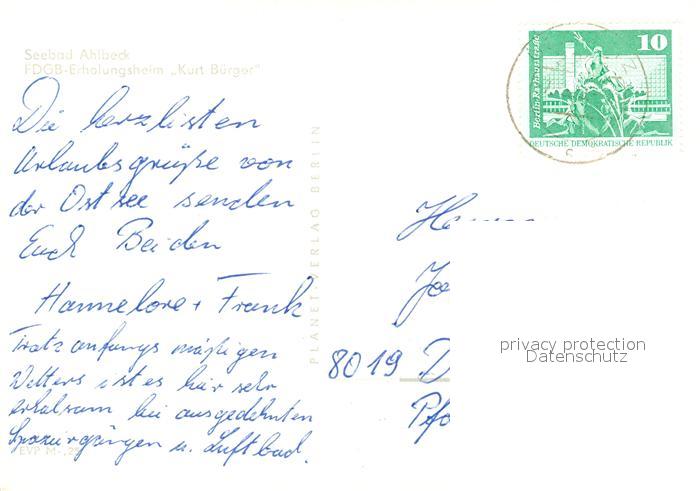 Seebad Ahlbeck
FDGB-Erholungsheim „Kurt Bürger"
Die herzlichsten
Urlaubsgrüße von
der Ostsee senden
Euch Beiden
Hannelore + Frank
Trotz anfangs mäßigen
Wetters ist es hier sehr
erholsam bei ausgedehnten
Spaziergängen u. Luftbad.
EVP M-,25
PLANET VERLAG BERLIN
10
Berlin-Rathausstraße
DEUTSCHE DEMOKRATISCHE REPUBLIK
8019 D
privacy protection
Datenschutz